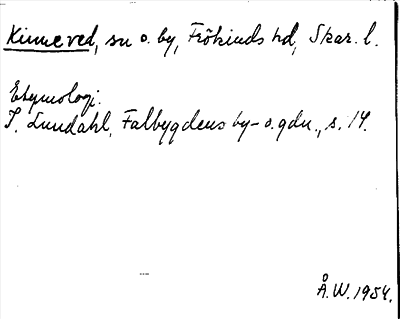 Kinneved, sn o. by, Frökinds hd, Skar. l.
Etymologi.
I. Lundahl, Falbygdens by- o. gdn., s. 14.
Å.W. 1954.